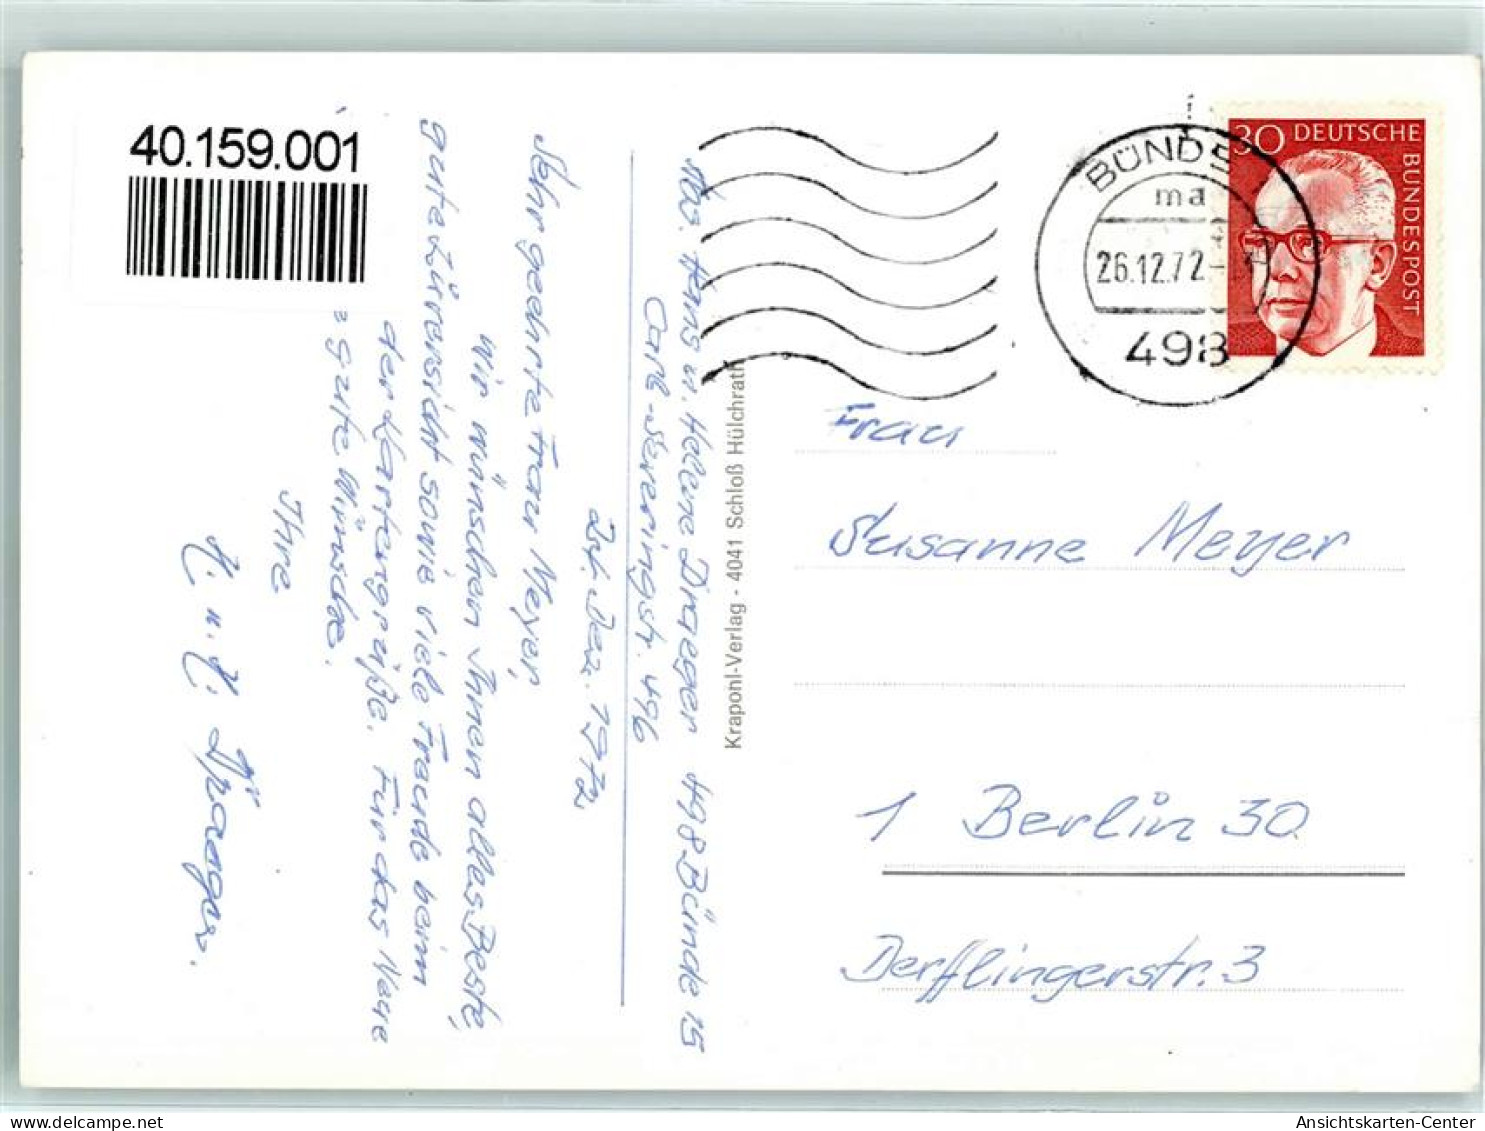 40.159.001
30 DEUTSCHE BUNDESPOST
BÜNDE
ma
26.12.72-
498
Abs. Hans u. Helene Draeger 498-Bünde 15
Carl-Severingstr. 496
24. Dez. 1972
Sehr geehrte Frau Meyer,
wir wünschen Ihnen alles Beste,
gute Zuversicht sowie viele Freude beim
der Kartengrüße. Für das Neue
gute Wünsche.
Ihre
H. u. H. Draeger.
Kraponl-Verlag - 4041 Schloß Hülchrath
Frau
Susanne Meyer
1 Berlin 30
Derfflingerstr. 3
delcampe.net
Ansichtskarten-Center